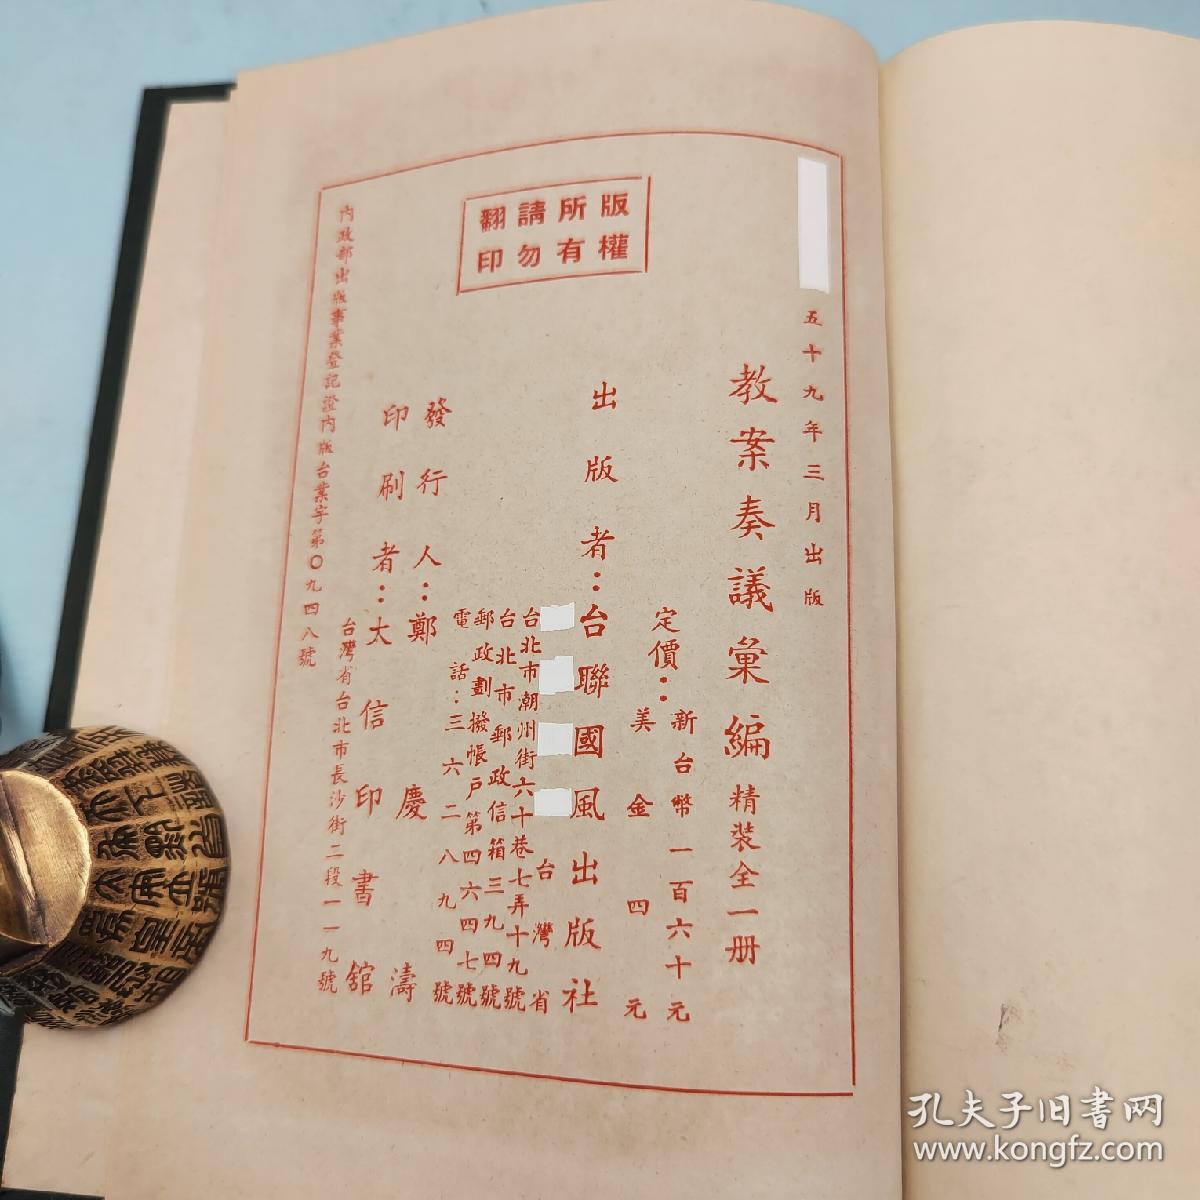 版權所有
請勿翻印
五十九年三月出版
教案奏議彙編 精裝全一册
定價：新台幣一百六十元
美金四元
出版者：台聯國風出版社
台灣省
台北市潮州街六十巷七弄十九號
台北市郵政信箱三九四號
郵政劃撥帳戶第四六四七號
電話：三六二八九四號
發行人：鄭慶濤
印刷者：大信印書館
台灣省台北市長沙街二段一一九號
內政部出版事業登記證內版台業字第〇九四八號
孔夫子旧书网
www.kongfz.com